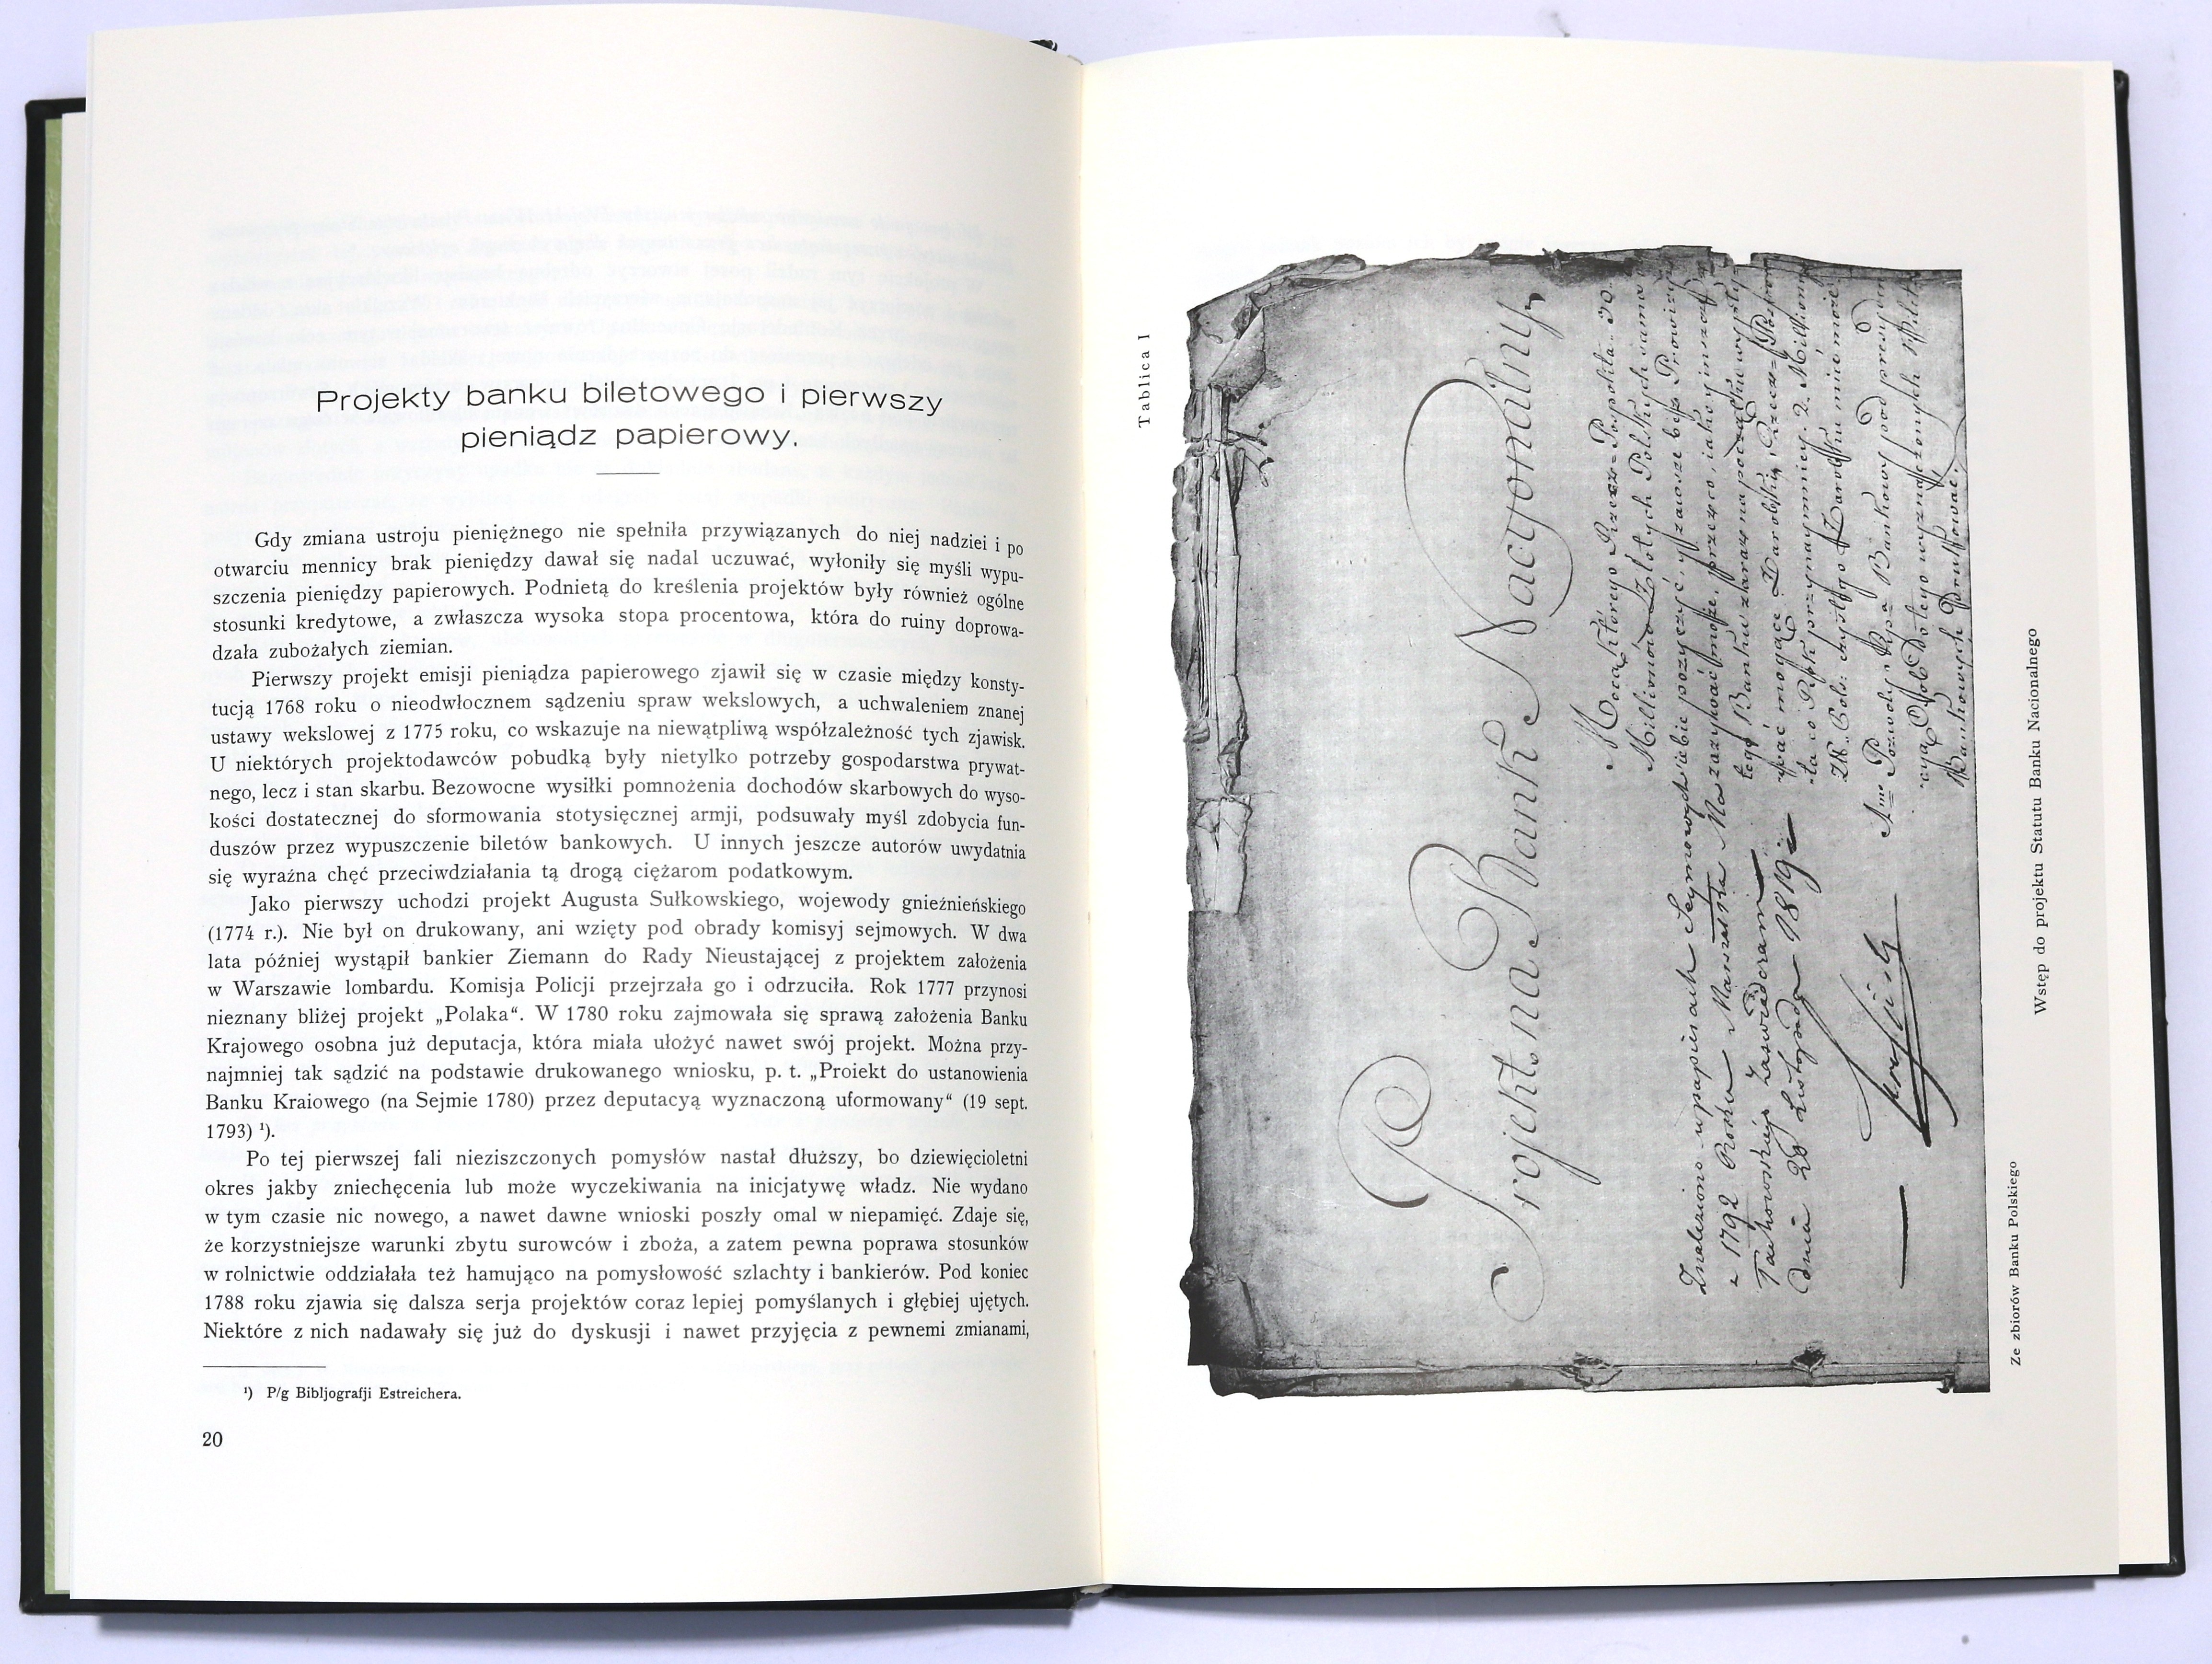 Projekty banku biletowego i pierwszy
pieniądz papierowy.
Gdy zmiana ustroju pieniężnego nie spełniła przywiązanych do niej nadziei i po
otwarciu mennicy brak pieniędzy dawał się nadal uczuwać, wyłoniły się myśli wypu-
szczenia pieniędzy papierowych. Podnietą do kreślenia projektów były również ogólne
stosunki kredytowe, a zwłaszcza wysoka stopa procentowa, która do ruiny doprowa-
dzała zubożałych ziemian.
Pierwszy projekt emisji pieniądza papierowego zjawił się w czasie między konsty-
tucją 1768 roku o nieodwłocznem sądzeniu spraw wekslowych, a uchwaleniem znanej
ustawy wekslowej z 1775 roku, co wskazuje na niewątpliwą współzależność tych zjawisk.
U niektórych projektodawców pobudką były nietylko potrzeby gospodarstwa prywat-
nego, lecz i stan skarbu. Bezowocne wysiłki pomnożenia dochodów skarbowych do wyso-
kości dostatecznej do sformowania stotysięcznej armji, podsuwały myśl zdobycia fun-
duszów przez wypuszczenie biletów bankowych. U innych jeszcze autorów uwydatnia
się wyraźna chęć przeciwdziałania tą drogą ciężarom podatkowym.
Jako pierwszy uchodzi projekt Augusta Sułkowskiego, wojewody gnieźnieńskiego
(1774 r.). Nie był on drukowany, ani wzięty pod obrady komisyj sejmowych. W dwa
lata później wystąpił bankier Ziemann do Rady Nieustającej z projektem założenia
w Warszawie lombardu. Komisja Policji przejrzała go i odrzuciła. Rok 1777 przynosi
nieznany bliżej projekt „Polaka“. W 1780 roku zajmowała się sprawą założenia Banku
Krajowego osobna już deputacja, która miała ułożyć nawet swój projekt. Można przy-
najmniej tak sądzić na podstawie drukowanego wniosku, p. t. „Proiekt do ustanowienia
Banku Kraiowego (na Sejmie 1780) przez deputacyą wyznaczoną uformowany“ (19 sept.
1793) ¹).
Po tej pierwszej fali nieziszczonych pomysłów nastał dłuższy, bo dziewięcioletni
okres jakby zniechęcenia lub może wyczekiwania na inicjatywę władz. Nie wydano
w tym czasie nic nowego, a nawet dawne wnioski poszły omal w niepamięć. Zdaje się,
że korzystniejsze warunki zbytu surowców i zboża, a zatem pewna poprawa stosunków
w rolnictwie oddziałała też hamująco na pomysłowość szlachty i bankierów. Pod koniec
1788 roku zjawia się dalsza serja projektów coraz lepiej pomyślanych i głębiej ujętych.
Niektóre z nich nadawały się już do dyskusji i nawet przyjęcia z pewnemi zmianami,
¹) P/g Bibljografji Estreichera.
20
Tablica I
Projekt na Bank Nacyonalny
Mocą którego Rzecz-Pospolita 30.
Millionów Złotych Polskich sama
u siebie pożyczyć, y zawsze bez Prowizyi
zażywać może, przez co, iako y inszość
tego Banku zaraz na początku wysty-
-ła co Rok przynaymniey 2. Milliony
Zł. Pols: czystego Zarobku mieć może
Bankowych Drukować.
Znaleziono w papierach Seymowych
z 1792 Roku Marszałka Ma
dnia 20 Listopada 1819
Ze zbiorów Banku Polskiego
Wstęp do projektu Statutu Banku Nacionalnego